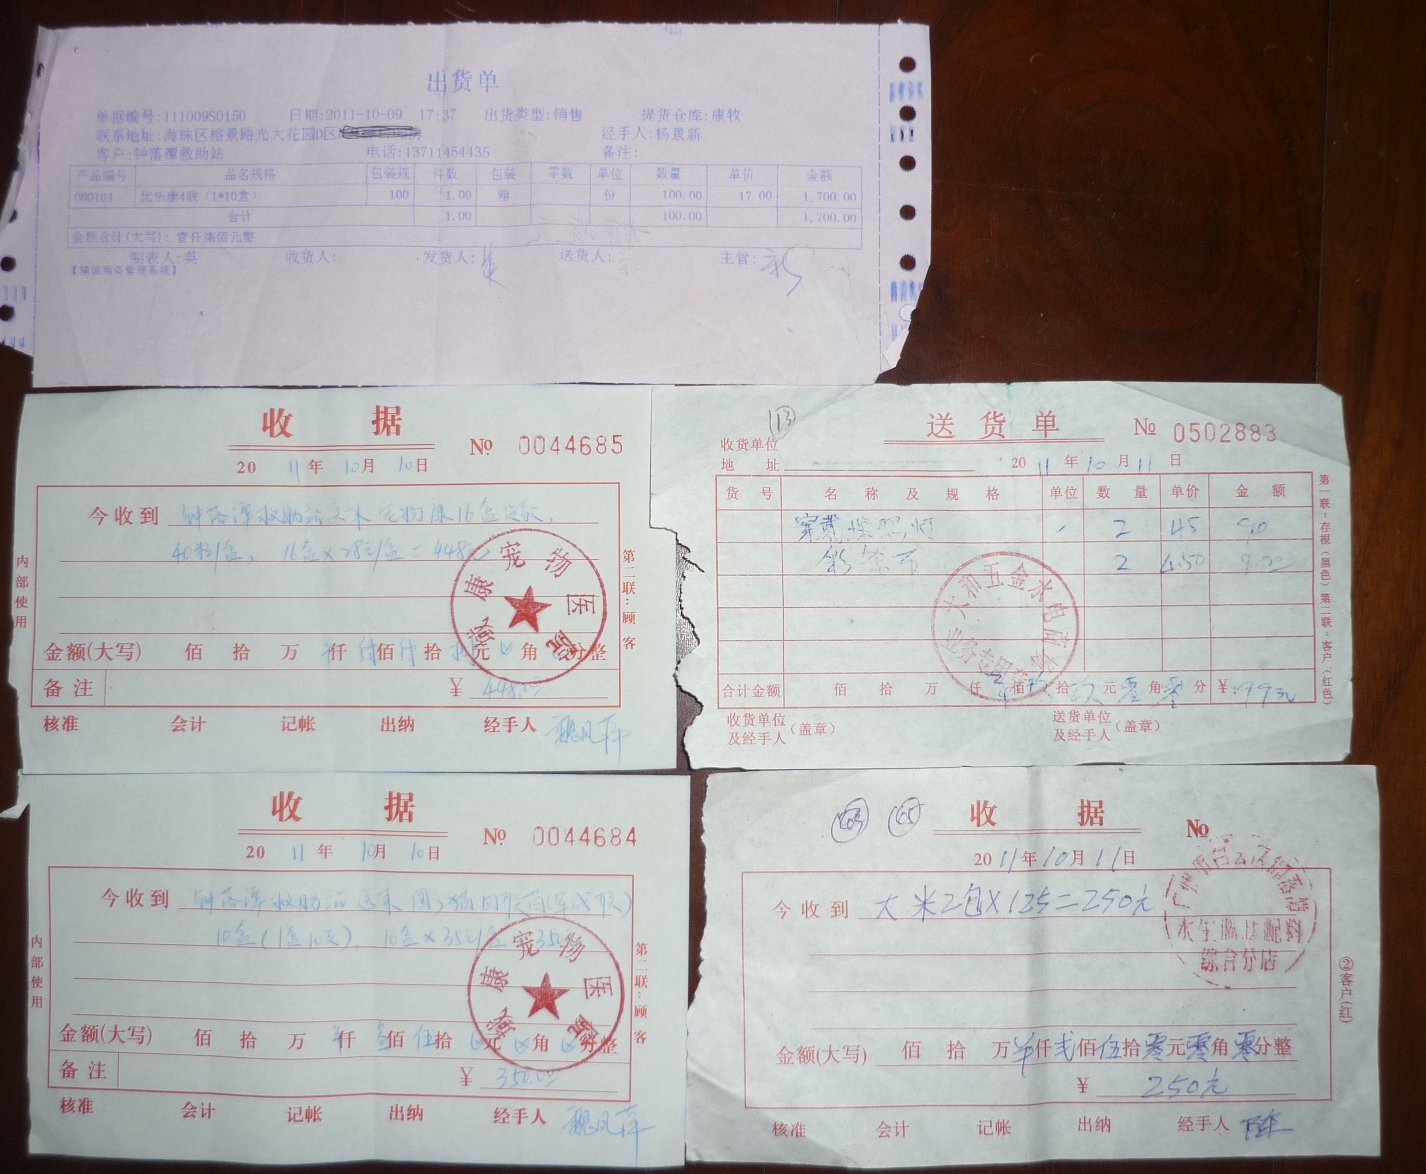 出货单
单据编号:111009S0150 日期:2011-10-09 17:37 出货类型:销售 提货仓库:康牧
联系地址:海珠区榕景路光大花园D区 经手人:杨景新
客户:钟落潭救助站 电话:13711454435 备注:
产品编号 品名规格 包装规 件数 包装 零数 单位 数量 单价 金额
0S0104 优乐康4联（1*10盒） 100 1.00 箱 份 100.00 17.00 1,700.00
合计 1.00 100.00 1,700.00
金额合计(大写): 壹仟柒佰元整
制表人:英 收货人: 发货人: 送货人: 主管:
收 据
№ 0044685
20 11 年 10 月 10 日
今收到 钟落潭救助站送来宠物康16盒
40粒/盒, 16盒×28元/盒=448元
金额(大写) 佰 拾 万 仟 肆佰 肆拾 捌元 角 分整
备注 ¥ 448.00
核准 会计 记帐 出纳 经手人 魏凤萍
内部使用
第二联:顾客
康宠物医院
送 货 单
№ 0502883
13
收货单位
地 址
20 11 年 10 月 11 日
货 号 名 称 及 规 格 单位 数 量 单价 金 额
2 45 90
2 4.50 9.00
合计金额 佰 拾 万 仟 佰 玖拾 玖元 零角 零分 ¥:99元
收货单位及经手人(盖章) 送货单位及经手人(盖章)
第一联:存根(黑色)第二联:客户(红色)
大和五金水电商
业务专用章
收 据
№ 0044684
20 11 年 10 月 10 日
今收到 钟落潭救助站送来
10盒(1盒10支), 10盒×35元/盒=350元
金额(大写) 佰 拾 万 仟 叁佰 伍拾 元 角 分整
备注 ¥ 350.00
核准 会计 记帐 出纳 经手人 魏凤萍
内部使用
第二联:顾客
康宠物医院
收 据
№
20 11 年 10 月 11 日
今收到 大米2包×125=250元
金额(大写) 佰 拾 万 仟 贰佰 伍拾 零元 零角 零分整
¥ 250元
核准 会计 记帐 出纳 经手人 陈
②客户(红)
综合分店